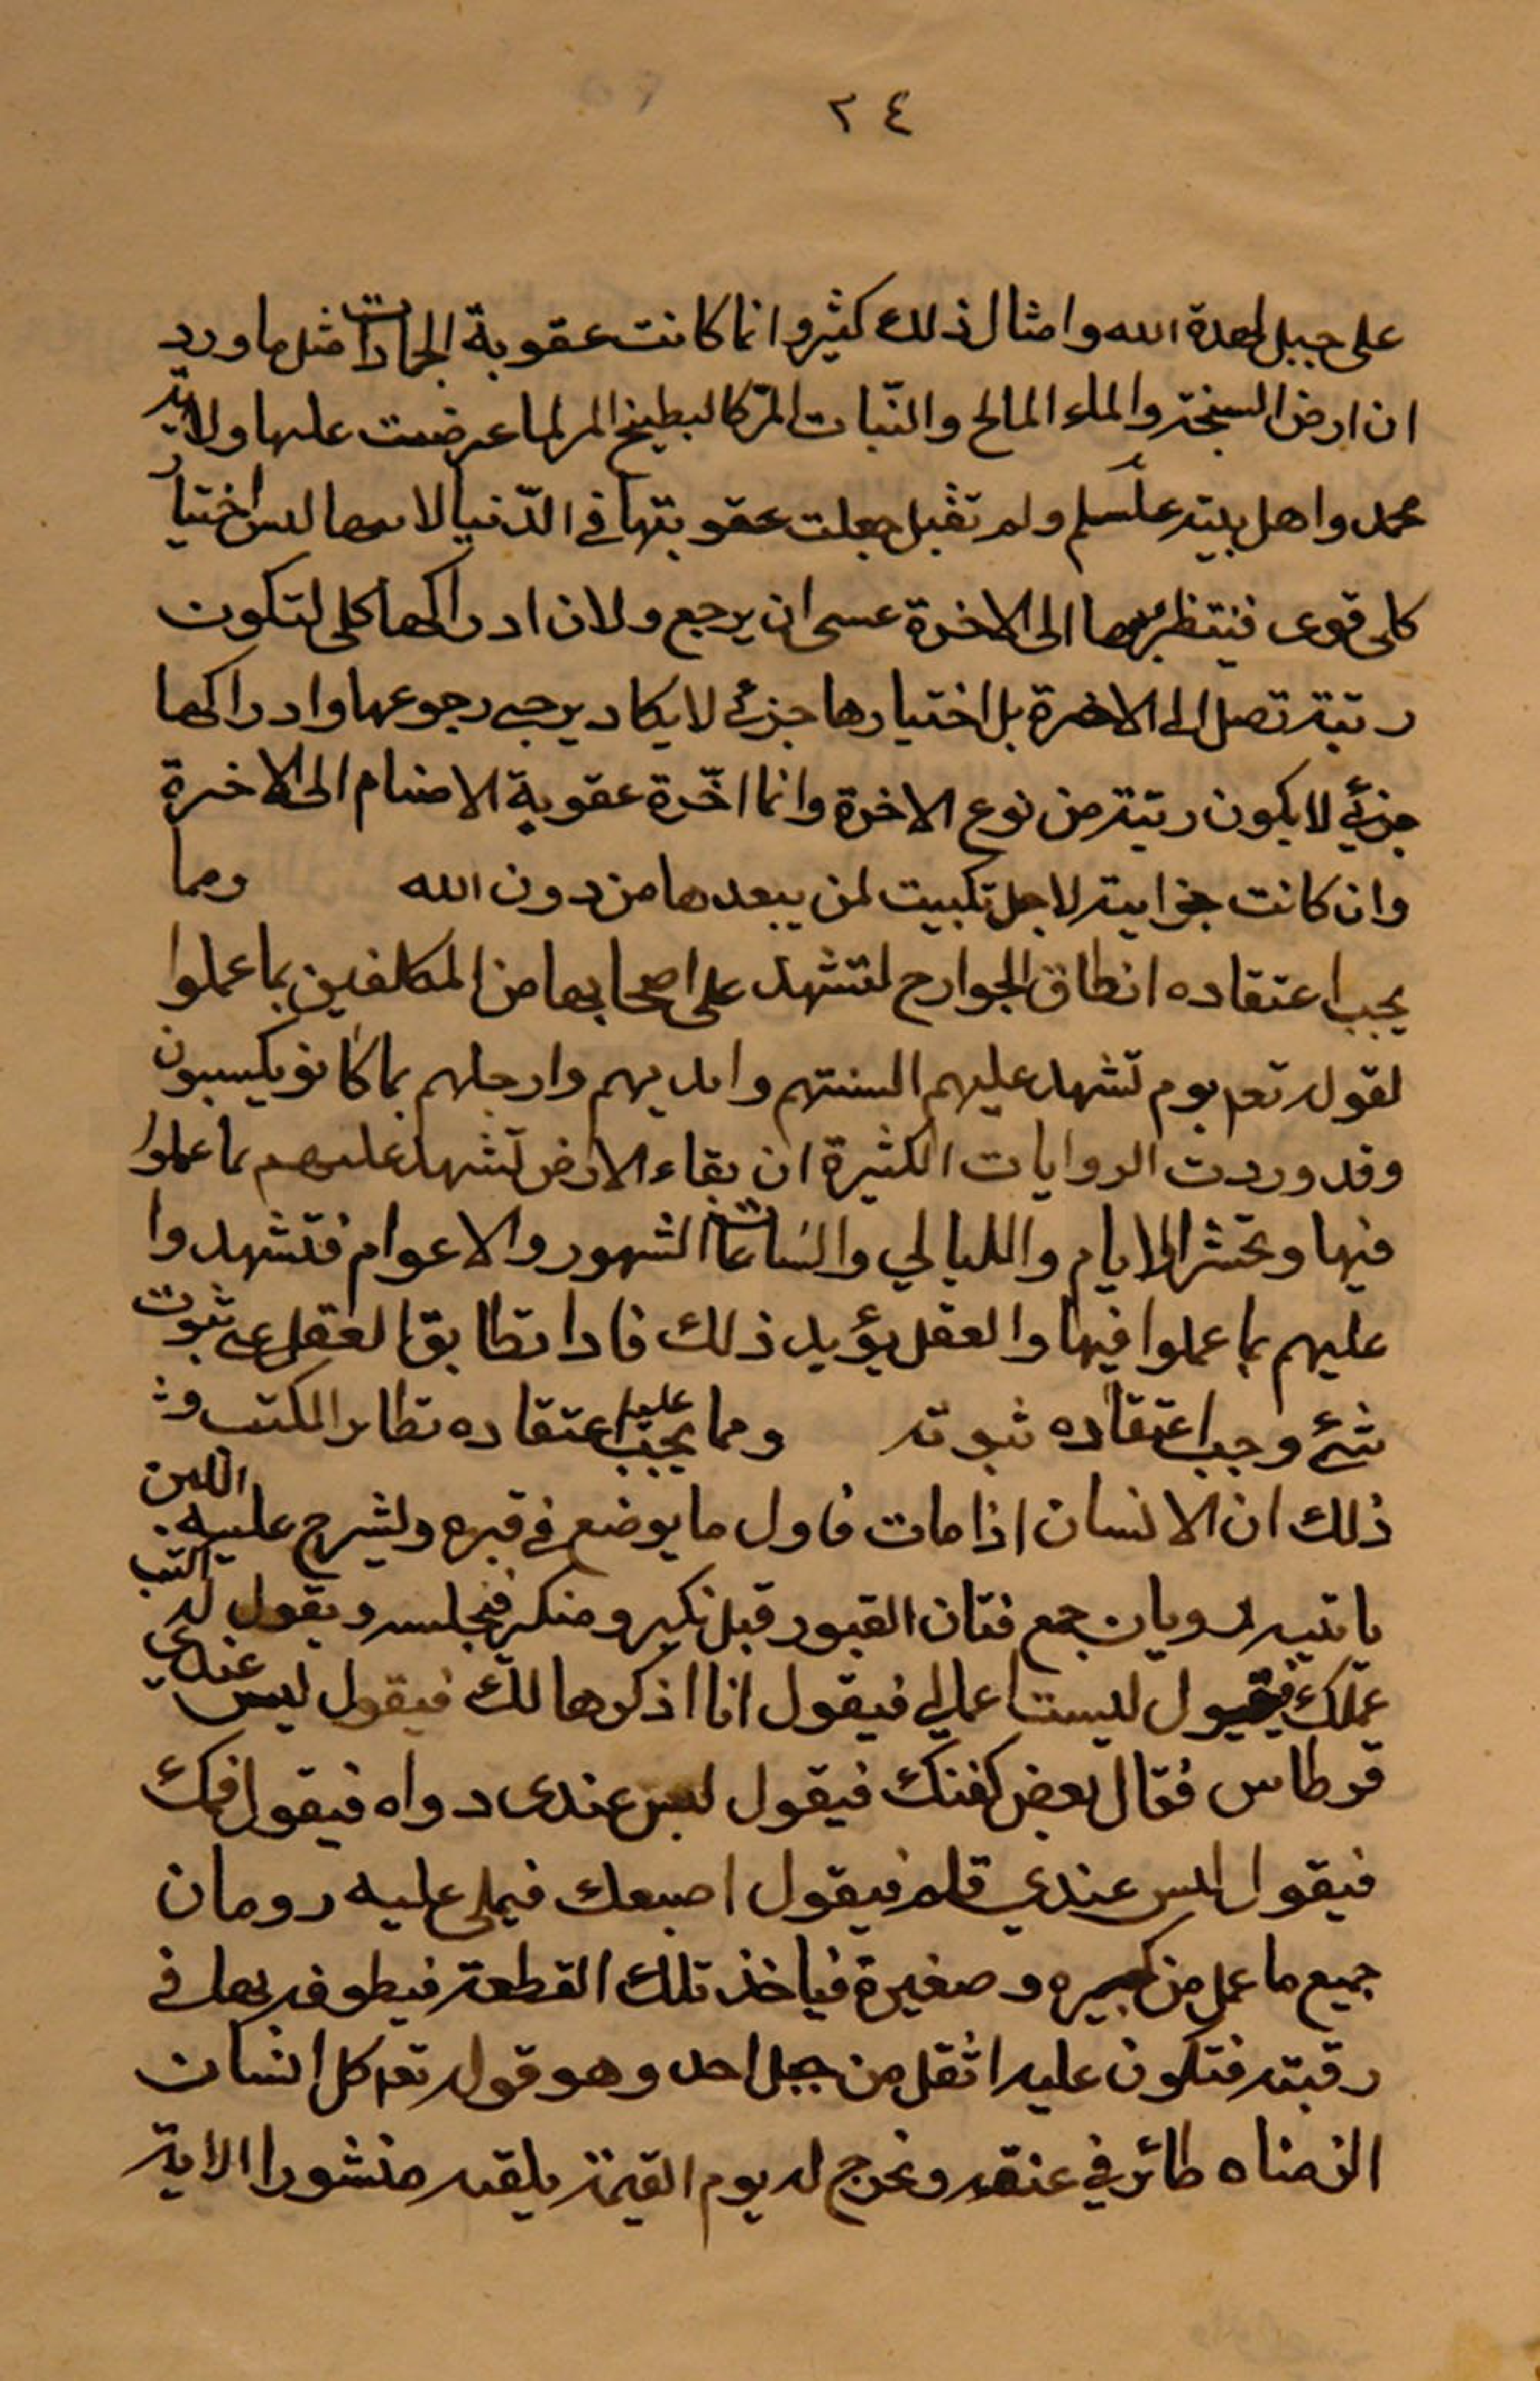 ٢٤
على جبل لهدة الله وامثال ذلك كثير وانما كانت عقوبة الجمادات مثل ما ورد
ان ارض السبخة والماء المالح والنّبات المرّ كالبطيخ المر لما عرضت عليها ولاية
محمد واهل بيته ولم تقبل جعلت عقوبتها في الدّنيا لانها ليس اختيار
كلى قوى فينتظر بها الى الاخرة عسى ان يرجع ولان ادراكها كلى لتكون
رتبته تصل الى الاخرة بل اختيارها جزئي لا يكاد يرجى رجوعها وادراكها
جزئي لا يكون رتبته من نوع الاخرة وانما اخّرة عقوبة الاصنام الى الاخرة
وان كانت لاجل تكبيت لمن يعبدها من دون الله ومما
يجب اعتقاده انطاق الجوارح لتشهد على اصحابها من المكلفين بما عملوا
لقوله تعم يوم تشهد عليهم السنتهم وايديهم وارجلهم بما كانو يكسبون
وقد وردت الروايات الكثيرة ان بقاء الارض تشهد عليهم بما عملوا
فيها وتحشر الايام والليالي والساعات الشهور والاعوام فتشهدوا
عليهم بما عملوا فيها والعقل يؤيد ذلك فاذا تطابق العقل على ثبوت
شئ وجب اعتقاده ثبوته ومما يجب عليه اعتقاده تطاير الكتب و
ذلك ان الانسان اذا مات فاول ما يوضع في قبره ويشرج عليه اللبن
ياتيه فتان القبور قبل نكير ومنكر فيجلسه ويقول له اكتب
عملك فيقول ليست اعمالي فيقول انا اذكرها لك فيقول ليس عندي
قرطاس فقال بعض كفنك فيقول ليس عندى دواه فيقول فمك
فيقول ليس عندي قلم فيقول اصبعك فيملى عليه رومان
جميع ما عمل من كبيره وصغيرة فياخذ تلك القطعة فيطوفه بها في
رقبته فتكون عليه اثقل من جبل احد وهو قوله تعم كل انسان
الزمناه طائر في عنقه ونخرج له يوم القيمة يلقه منشورا الاية